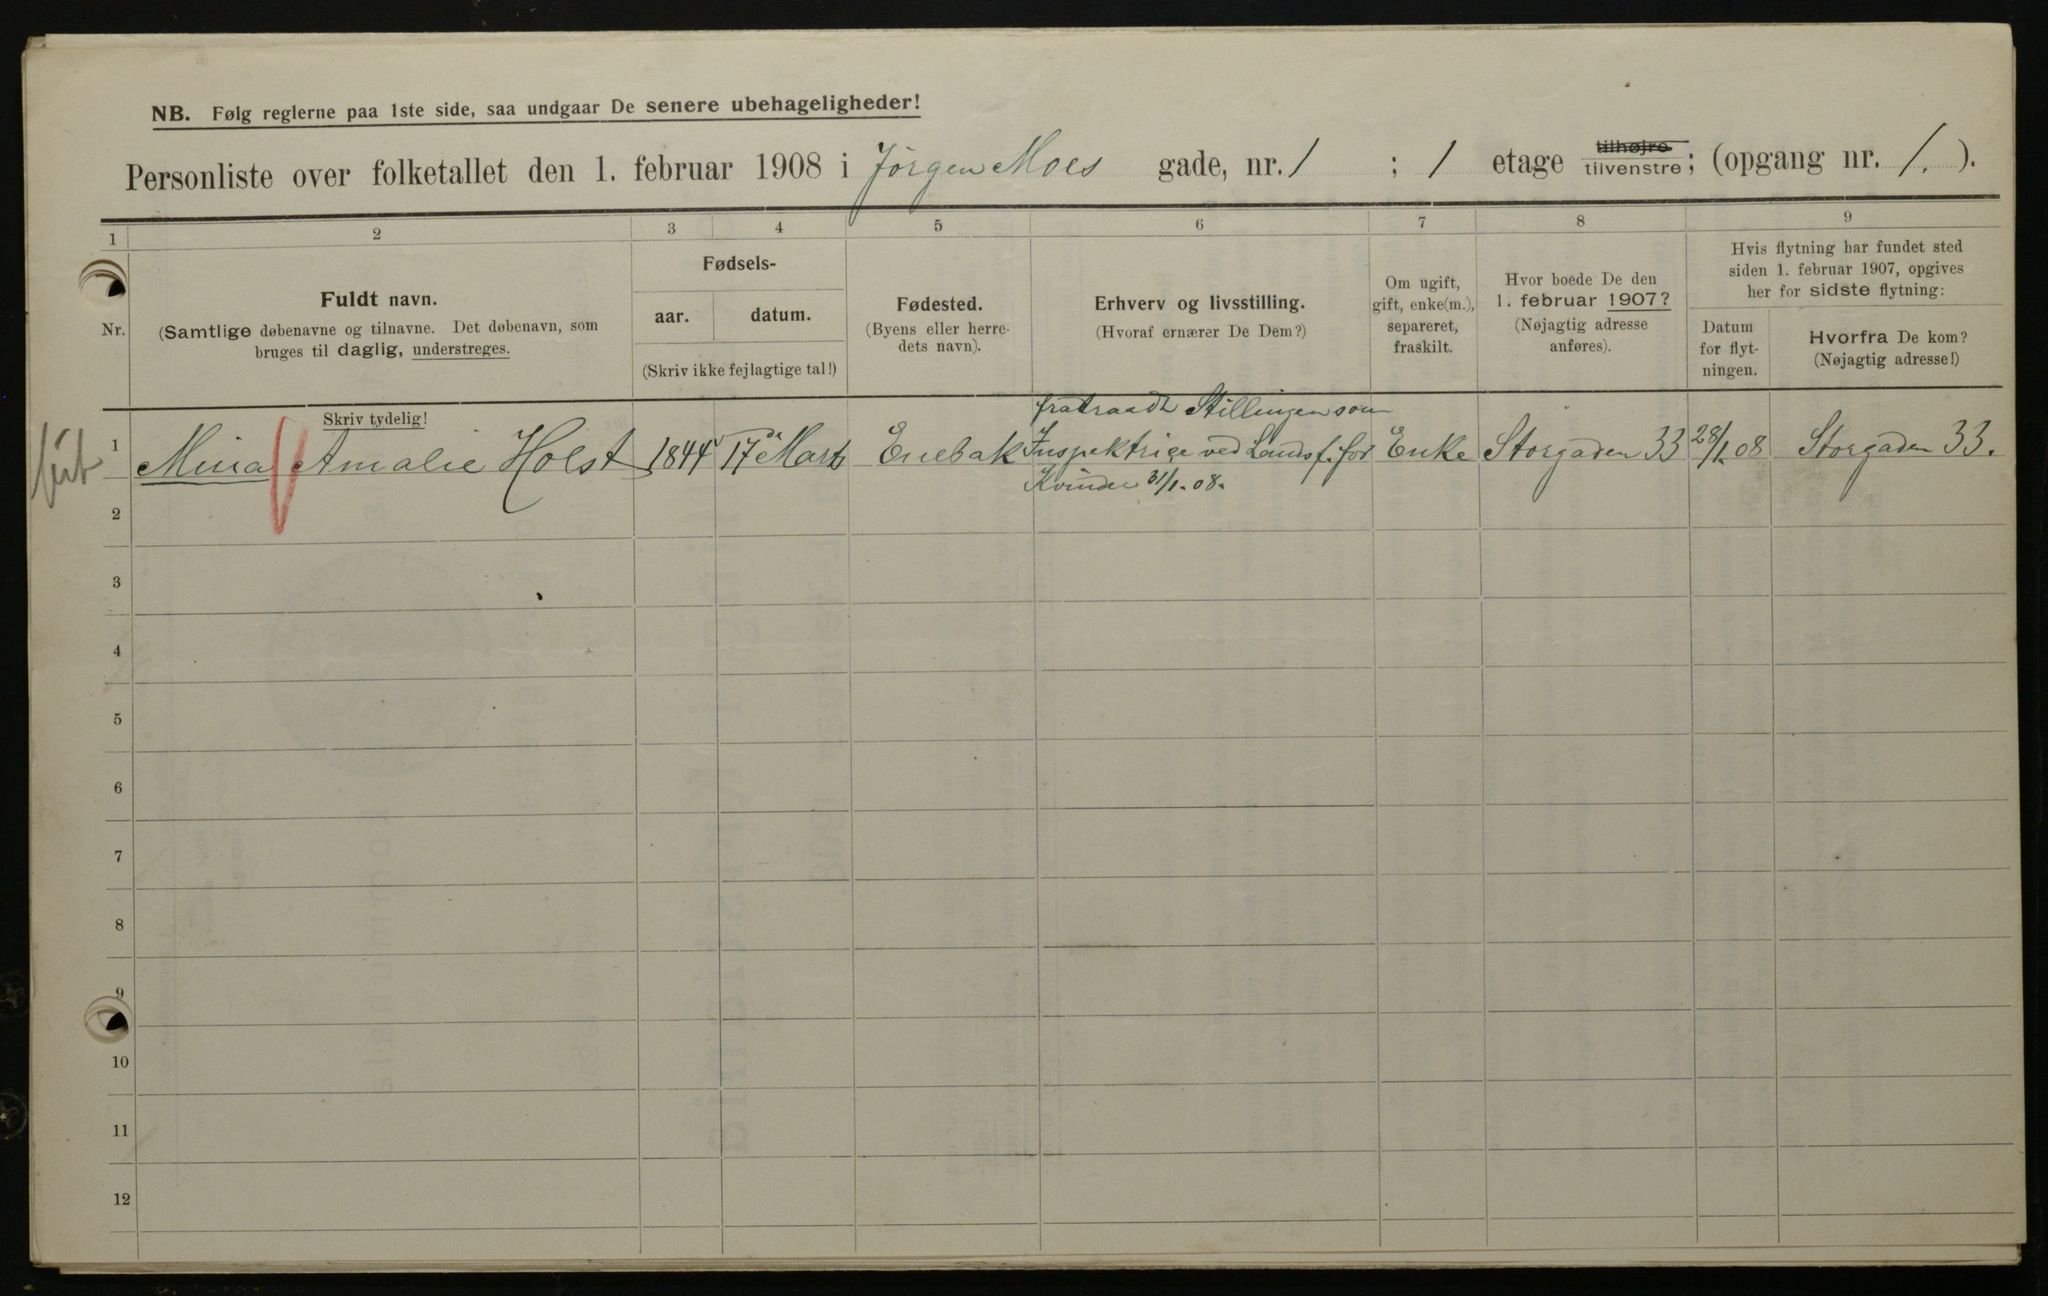 NB. Følg reglerne paa 1ste side, saa undgaar De senere ubehageligheder!
Personliste over folketallet den 1. februar 1908 i Jörgen Moes gade, nr. 1 ; 1 etage tilhøjre / tilvenstre; (opgang nr. 1. ).
1 2 3 4 5 6 7 8 9
Nr.
Fuldt navn.
(Samtlige døbenavne og tilnavne. Det døbenavn, som
bruges til daglig, understreges.
Skriv tydelig!
Fødsels-
aar. datum.
(Skriv ikke fejlagtige tal!)
Fødested.
(Byens eller herre-
dets navn).
Erhverv og livsstilling.
(Hvoraf ernærer De Dem?)
Om ugift,
gift, enke(m.),
separeret,
fraskilt.
Hvor boede De den
1. februar 1907?
(Nøjagtig adresse
anføres).
Hvis flytning har fundet sted
siden 1. februar 1907, opgives
her for sidste flytning:
Datum
for flyt-
ningen.
Hvorfra De kom?
(Nøjagtig adresse!)
1 Mina Amalie Holst 1844 17de Marts Enebak
fratraadt Stillingen som
Inspektrice ved Landsf. for
Kvinder 31/1.08.
Enke Storgaden 33 28/1.08 Storgaden 33.
2
3
4
5
6
7
8
9
10
11
12